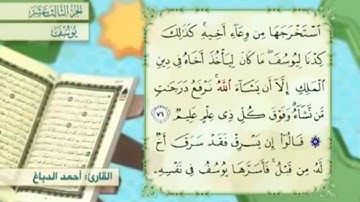 الجزء الثالث عشر
يوسف
ٱسۡتَخۡرَجَهَا مِن وِعَآءِ أَخِيهِۚ كَذَٰلِكَ
كِدۡنَا لِيُوسُفَۖ مَا كَانَ لِيَأۡخُذَ أَخَاهُ فِي دِينِ
ٱلۡمَلِكِ إِلَّآ أَن يَشَآءَ ٱللَّهُۚ نَرۡفَعُ دَرَجَٰتٖ
مَّن نَّشَآءُۗ وَفَوۡقَ كُلِّ ذِي عِلۡمٍ عَلِيمٞ ٧٦
۞ قَالُوٓاْ إِن يَسۡرِقۡ فَقَدۡ سَرَقَ أَخٞ
لَّهُۥ مِن قَبۡلُۚ فَأَسَرَّهَا يُوسُفُ فِي نَفۡسِهِۦ
القارئ: أحمد الدباغ